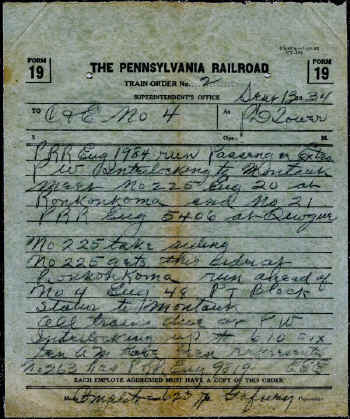 FORM 19
THE PENNSYLVANIA RAILROAD
FORM 19
TRAIN ORDER No. 2
SUPERINTENDENT'S OFFICE
13 34
TO C&E No 4 At PD Tower
X Opr. M.
PRR Eng 1984 run Passenger Extra
PW Interlocking to Montauk
meet No 225 Eng 20 at
Ronkonkoma and No 21
PRR Eng 5406 at
No 225 take siding
No 225 gets this order at
Ronkonkoma run ahead of
No 4 Eng 48 PT Block
Station to Montauk
All trains due at PW
Interlocking up to 610 six
ten A.M. have
No 263 has PRR Eng 9319
EACH EMPLOYE ADDRESSED MUST HAVE A COPY OF THIS ORDER
Made Complete 623